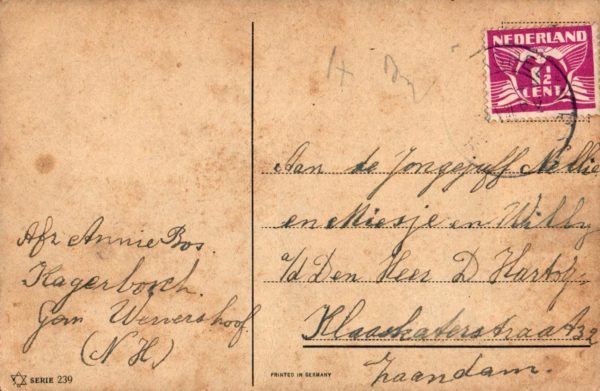 NEDERLAND
1½
CENT
Aan de Jongejuff Nellie
en Miesje en Willy
a/d Den Heer D Hartog
Klaaskaterstraat 32
Zaandam.
Afz Annie Bos.
Kagerbosch.
Gem Wervershoof
(N H.)
SERIE 239
PRINTED IN GERMANY